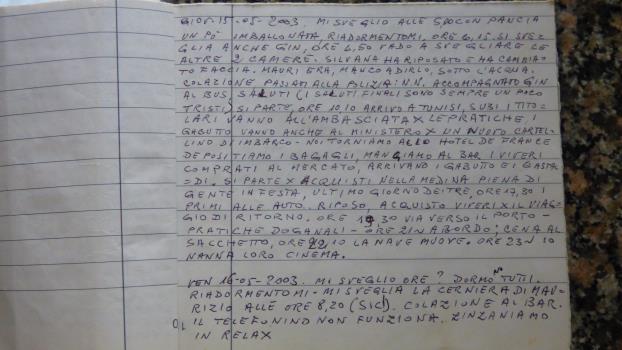 GIOV-15-05-2003. MI SVEGLIO ALLE 5 CON PANCIA
UN PÒ IMBALLONATA, RIADDORMENTOMI, ORE 6,15 SI SVE
GLIA ANCHE GIN, ORE 6,50 VADO A SVEGLIARE LE
ALTRE 2 CAMERE. SILVANA HA RIPOSATO E HA CAMBIA
TO FACCIA. MAURI ERA, MANCO A DIRLO, SOTTO L'ACQUA.
COLAZIONE PASSATI ALLA POLIZIA: N.N. ACCOMPAGNATO GIN
AL BUS SALUTI (I SALUTI FINALI SONO SEMPRE UN POCO
TRISTI) SI PARTE, ORE 10 10 ARRIVO A TUNISI, SUBI I TITO=
LARI VANNO ALL'AMBASCIATA X LE PRATICHE, I
GABUTTO VANNO ANCHE AL MINISTERO X UN NUOVO CARTEL=
LINO DI IMBARCO - NOI TORNIAMO ALLO HOTEL DE FRANCE
DEPOSITIAMO I BAGAGLI, MANGIAMO AL BAR I VIVERI
COMPRATI AL MERCATO, ARRIVANO I GABUTTO E I GASTA
=DI. SI PARTE X ACQUISTI NELLA MEDINA PIENA DI
GENTE IN FESTA, ULTIMO GIORNO DEI TRE, ORE 17,30 I
PRIMI ALLE AUTO. RIPOSO, ACQUISTO VIVERI X IL VIAG=
GIO DI RITORNO. ORE 19 30 VIA VERSO IL PORTO -
PRATICHE DOGANALI - ORE 21 IN A BORDO; CENA AL
SACCHETTO, ORE 22,10 LA NAVE MUOVE. ORE 23 10
NANNA LORO CINEMA.
VEN 16-05-2003. MI SVEGLIO ORE 7 DORMONO TUTTI.
RIADDORMENTOMI - MI SVEGLIA LA CERNIERA DI MAU=
RIZIO ALLE ORE 8,20 (SIC). COLAZIONE AL BAR.
IL TELEFONINO NON FUNZIONA. ZINZANIAMO
IN RELAX